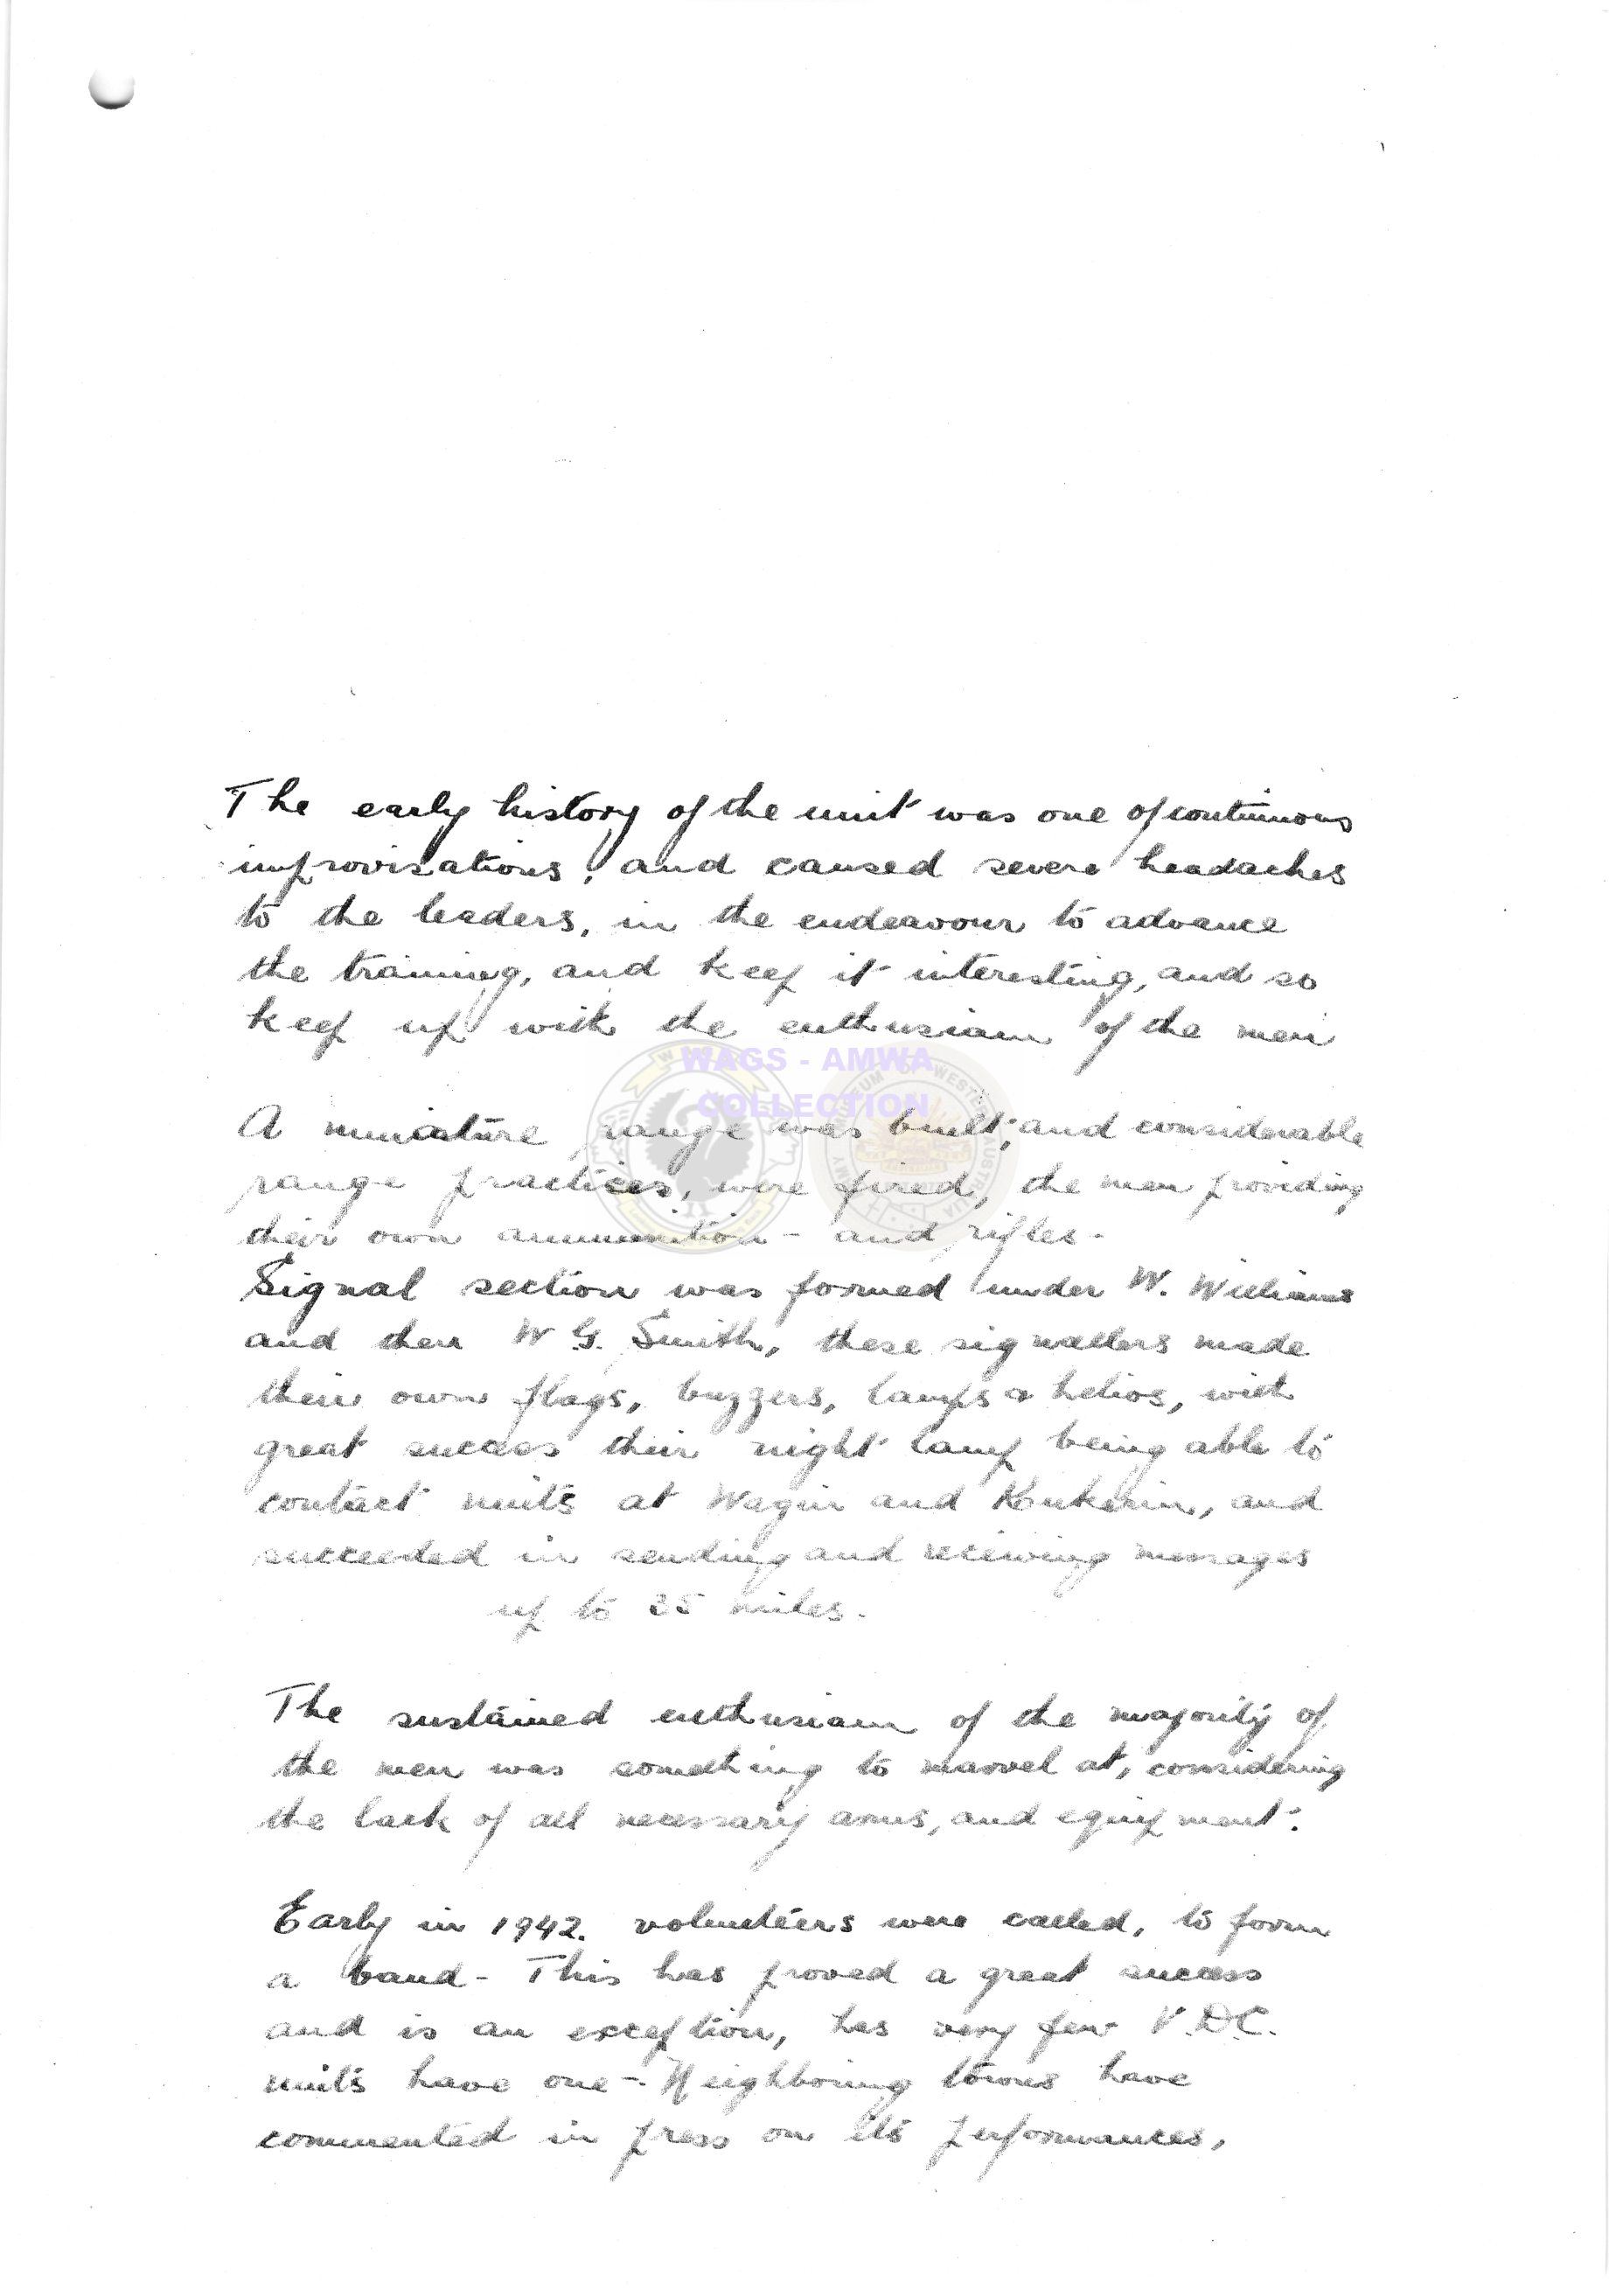 The early history of the unit was one of continuous
improvisations, and caused severe headaches
to the leaders, in the endeavour to advance
the training, and keep it interesting, and so
keep up with the enthusiasm of the men
WAGS - AMWA
COLLECTION
A miniature range was built, and considerable
range practices, were fired, the men providing
their own ammunition - and rifles.
Signal section was formed under W. Williams
and then W G. Smith, these signallers made
their own flags, buzzers, lamps & helios, with
great success their night lamp being able to
contact units at Wagin and Kukerin, and
succeeded in sending and receiving messages
up to 25 miles.
The sustained enthusiasm of the majority of
the men was something to marvel at, considering
the lack of all necessary arms, and equipment.
Early in 1942. volunteers were called, to form
a band - This has proved a great success
and is an exception, has very few V.D.C.
units have one - Neighboring towns have
commented in press on its performances,